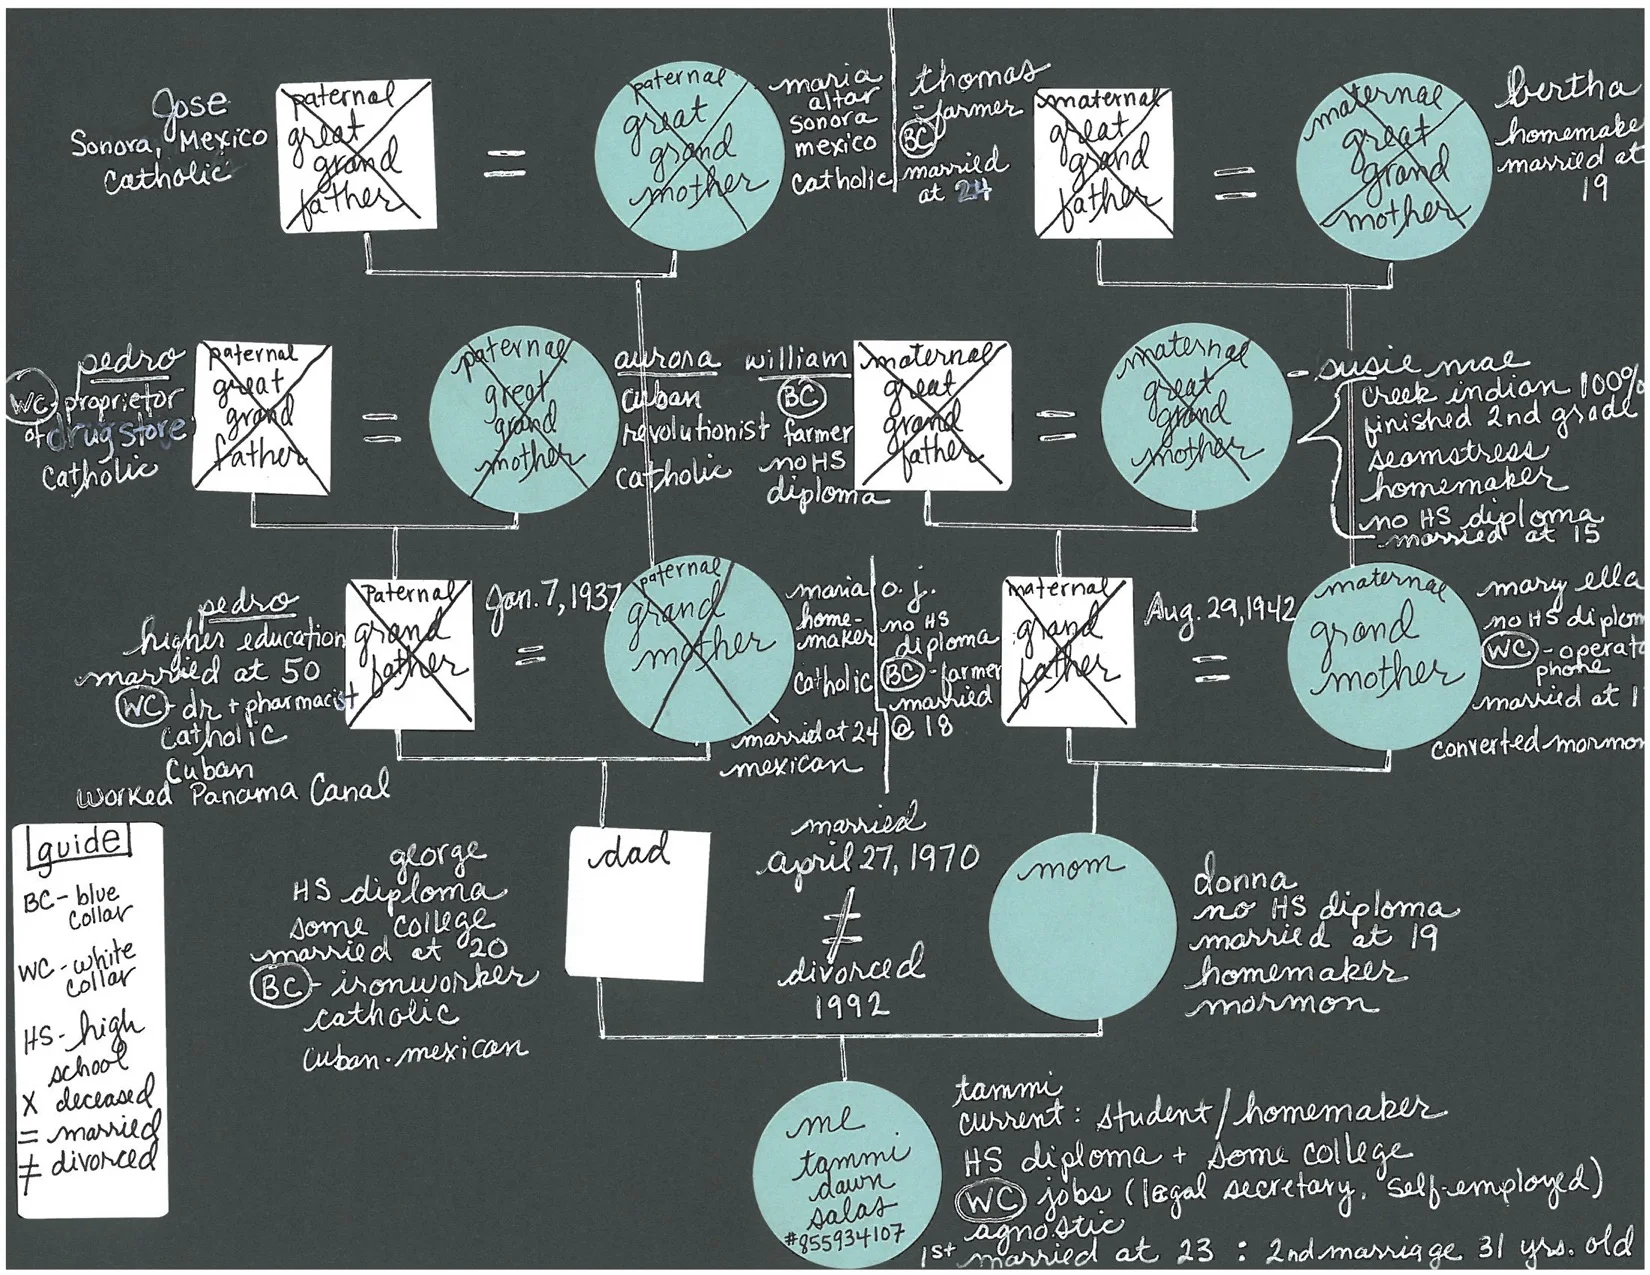 Jose
Sonora, Mexico
Catholic
paternal
great
grand
father
=
paternal
great
grand
mother
maria
altar
sonora
mexico
Catholic
thomas
- farmer
BC
married
at 24
maternal
great
grand
father
=
maternal
great
grand
mother
bertha
homemake
married at
19
pedro
WC - proprietor
of drugstore
Catholic
paternal
great
grand
father
=
paternal
great
grand
mother
aurora
cuban
revolutionist
catholic
william
BC
farmer
no HS
diploma
maternal
great
grand
father
=
maternal
great
grand
mother
- susie mae
creek indian 100%
finished 2nd grade
seamstress
homemaker
no HS diploma
married at 15
pedro
higher education
married at 50
WC - dr + pharmacist
Catholic
Cuban
worked Panama Canal
Paternal
grand
father
Jan. 7, 1937
=
paternal
grand
mother
maria
home-
maker
catholic
married at 24
mexican
o. j.
no HS
diploma
BC - farmer
married
@ 18
maternal
grand
father
Aug. 29, 1942
=
maternal
grand
mother
mary ella
no HS diplom
WC - operato
phone
married at 1
converted mormon
guide
BC - blue
collar
WC - white
collar
HS - high
school
X deceased
= married
≠ divorced
george
HS diploma
some college
married at 20
BC - ironworker
catholic
cuban. mexican
dad
married
april 27, 1970
≠
divorced
1992
mom
donna
no HS diploma
married at 19
homemaker
mormon
me
tammi
dawn
salas
#855934107
tammi
current: student/homemaker
HS diploma + some college
WC jobs (legal secretary, self-employed)
agnostic
1st married at 23 : 2nd marriage 31 yrs. old